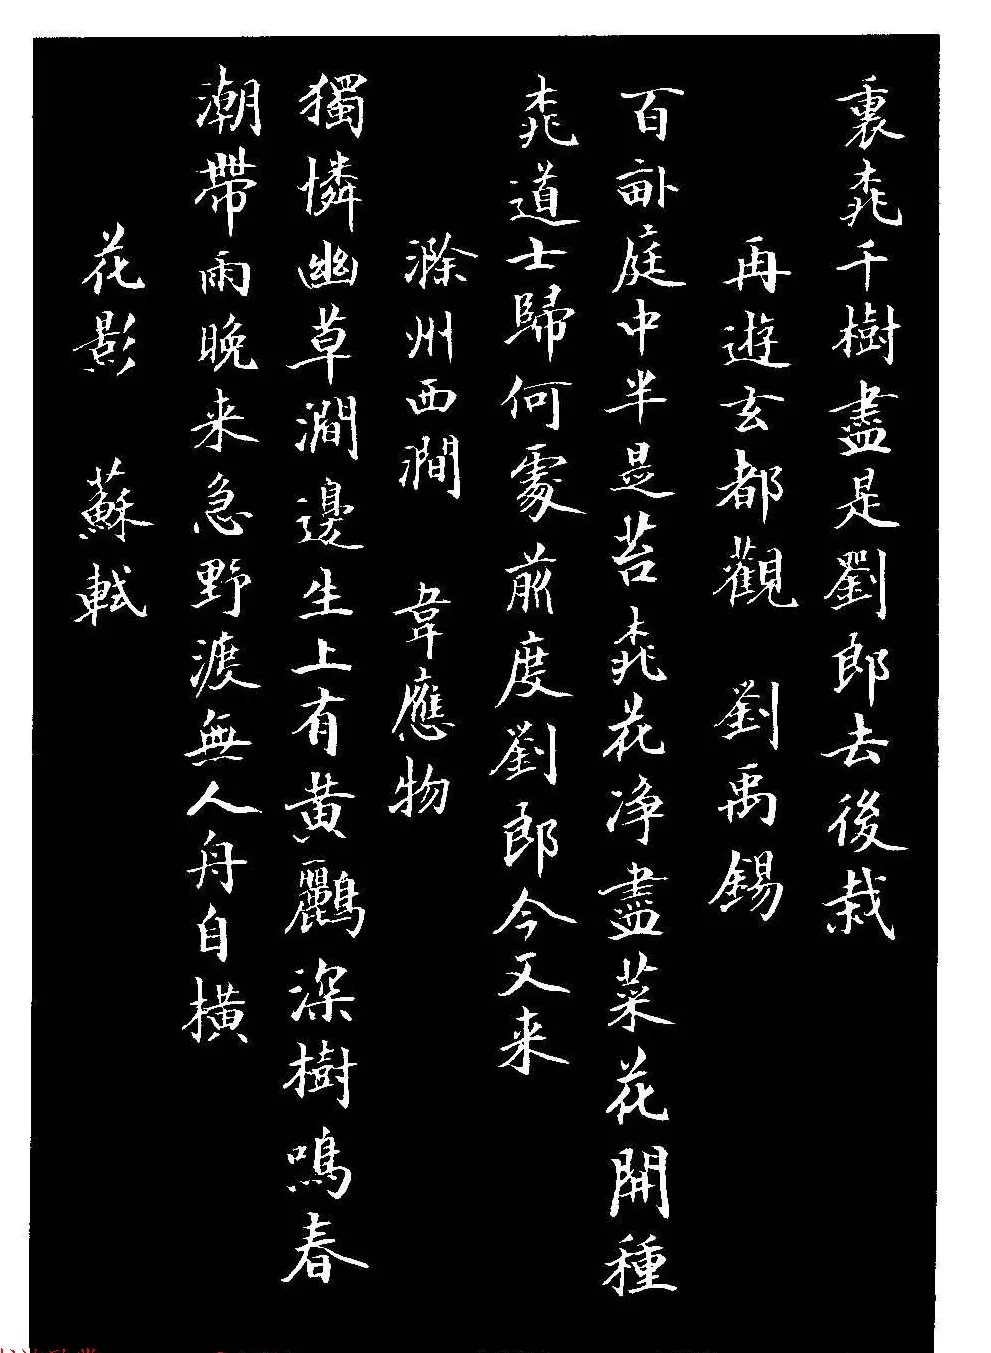 裏桃千樹盡是劉郎去後栽
再遊玄都觀 劉禹錫
百畝庭中半是苔桃花净盡菜花開種
桃道士歸何處前度劉郎今又来
滁州西澗 韋應物
獨憐幽草澗邊生上有黄鸝深樹鳴春
潮帶雨晚来急野渡無人舟自横
花影 蘇軾